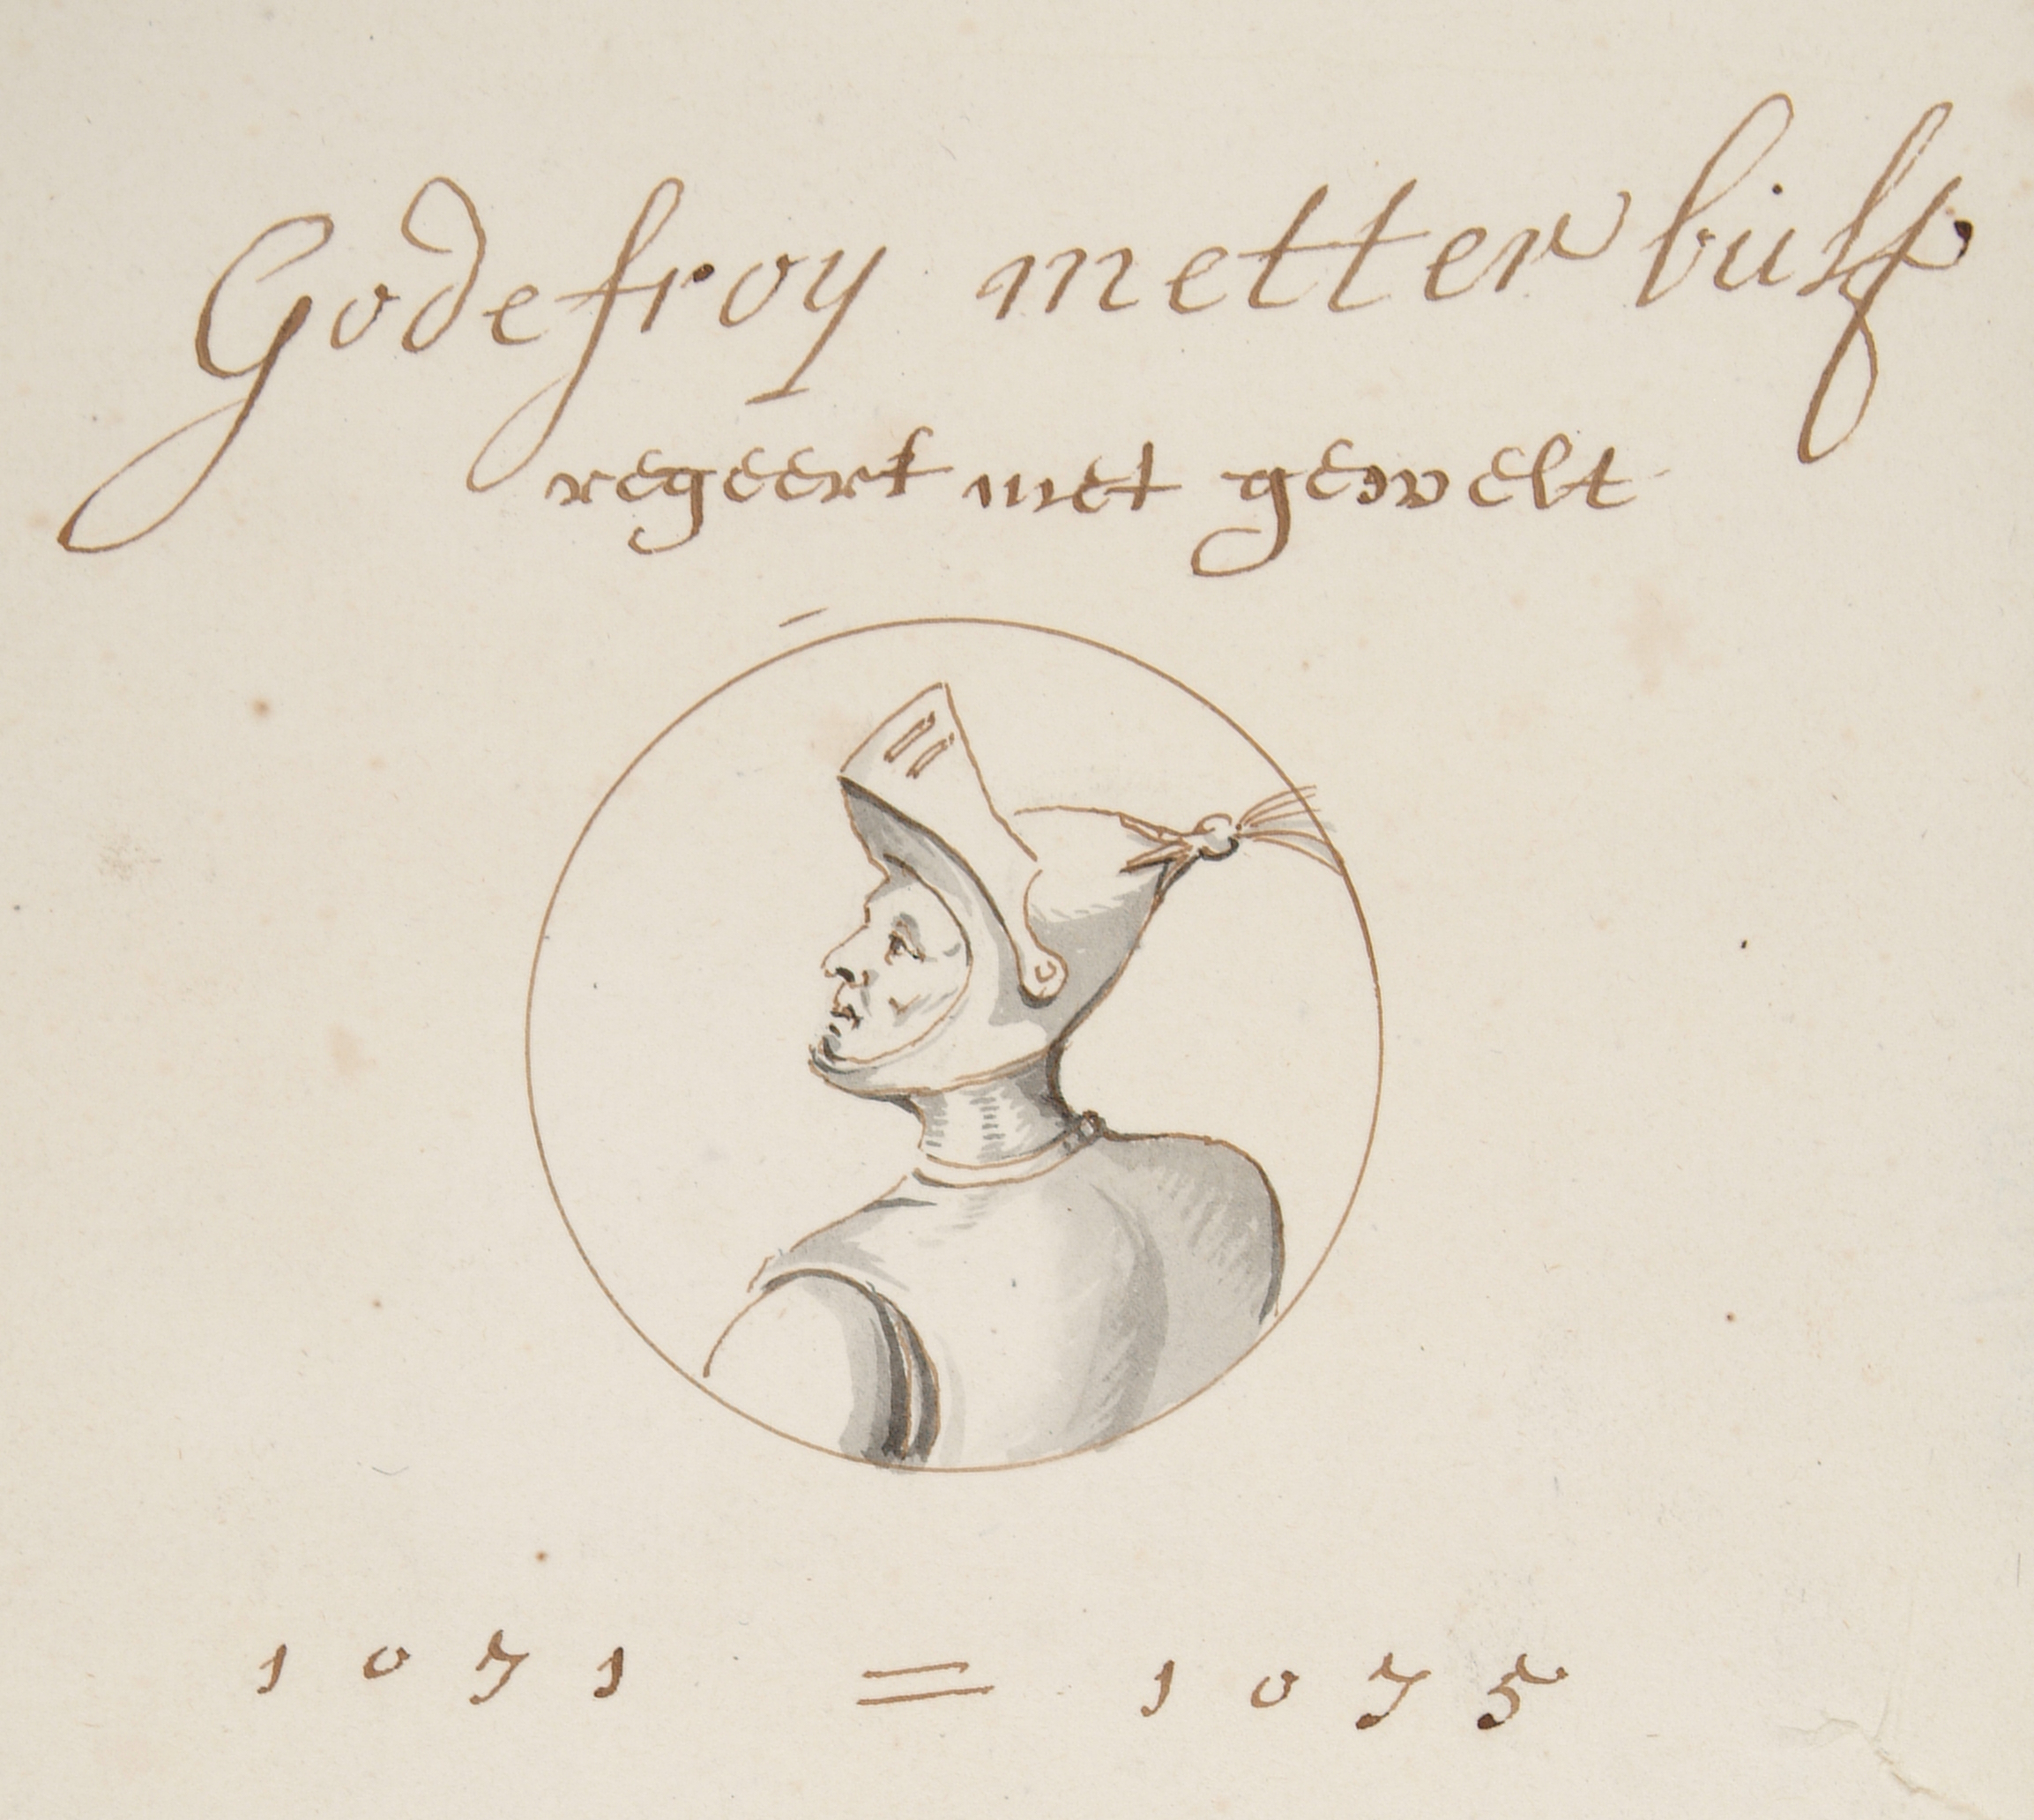 Godefroy metter bult
regeert met gewelt
1071 = 1075